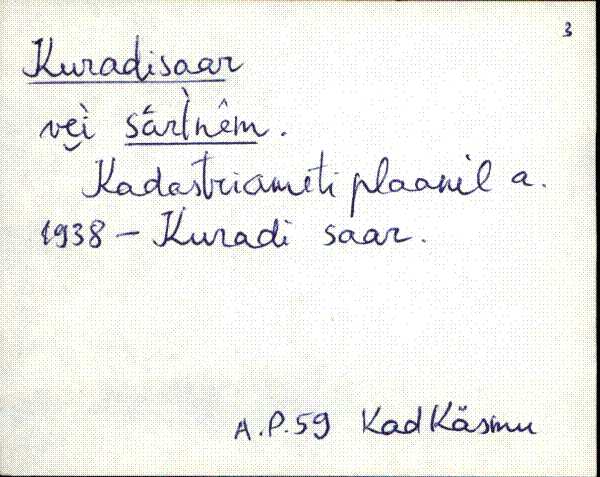 3
Kuradisaar
vèi särtnêm.
Kadastriameti plaanil a.
1938 - Kuradi saar.
A.P.59 Kad Käsmu